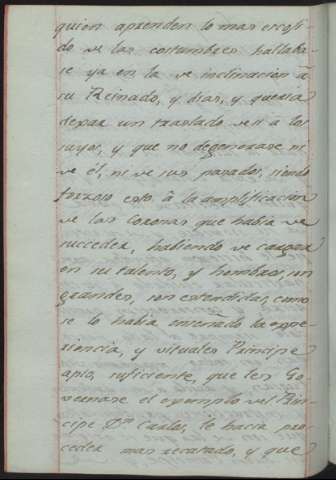 quien aprenden lo mas escoji-
do de las costumbres hallaba-
se ya en la de inclinacion á
su Reinado, y dias, y queria
dexar un traslado de si a los
suyos, y que no degenerase ni
de él, ni de sus pasados, siendo
forzoso esto á la amplificacion
de las Coronas que habia de
succeder, habiendo de cargar
en su talento, y hombros, un
grandes, son estendidas, como
se lo habia enseñado la expe-
riencia, y virtuales Principe
apto, suficiente, que les Go-
vernase el exemplo del Prin-
cipe Dn. Carlos, le hacia pro-
ceder mas recatado, y que